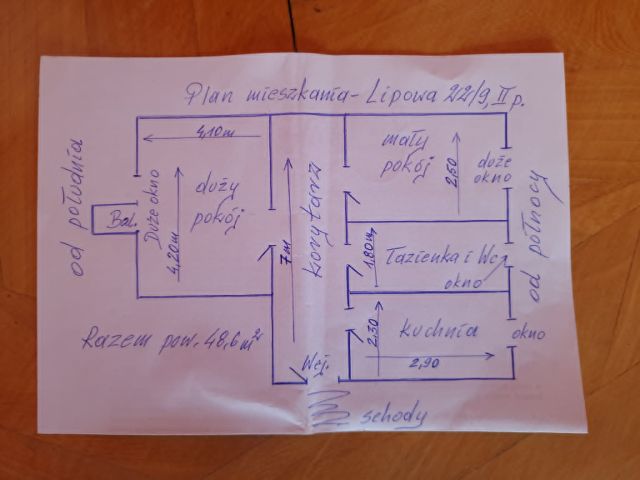 Plan mieszkania - Lipowa 22/9, II p.
od południa
4,10m
duży
pokój
Duże okno
Bal.
4,20m
7m
korytarz
mały
pokój
2,50
duże
okno
od północy
1,80m
Łazienka i Wc
okno
2,30
kuchnia
2,90
okno
Razem pow. 48,6 m²
Wej.
schody